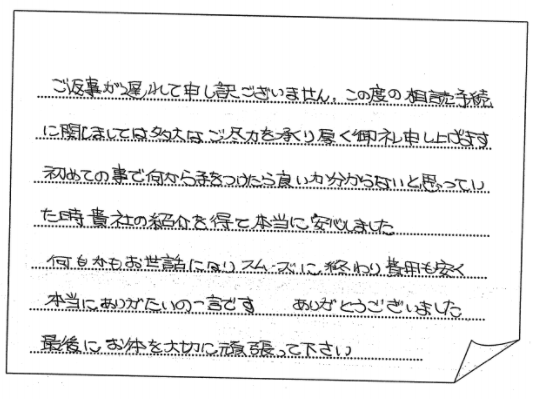 ご返事が遅れて申し訳ございません。この度の相続手続
に関しましては多大なご尽力を承り厚く御礼申し上げます
初めての事で何から手をつけたら良いか分からないと思ってい
た時貴社の紹介を得て本当に安心しました
何もかもお世話になりスムーズに終わり費用も安く
本当にありがたいの一言です　ありがとうございました
最後にお体を大切に頑張って下さい